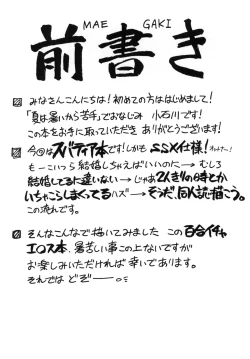 MAE GAKI
前書き
みなさんこんにちは！初めての方ははじめまして！
「夏は暑いから苦手」でおなじみ 小石川です！
この本をお手に取っていただき ありがとうございます！
今回はスパティア本です！しかもSSX仕様！
もーこいつら結婚しちゃえばいいのに→むしろ
結婚してるに違いない→じゃあ2人きりの時とか
いちゃこらしまくってるハズ→そうだ、同人誌描こう。
この流れです。
そんなこんなで描いてみました この百合イチャ
エロス本、暑苦しい事この上ないですが
お楽しみいただければ幸いであります。
それでは どぞー